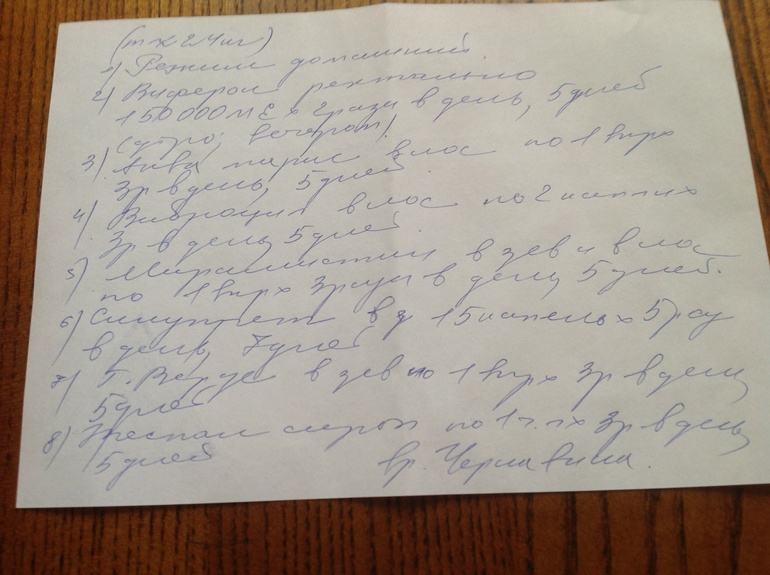 1) Режим домашний
2) Виферон ректально
150000МЕ х 2 раза в день, 5 дней
(утро, вечером)
3) Аква марис в нос по 1 впр х
3р в день, 5 дней
4) Виброцил в нос по 2 капли х
3р в день 5 дней
5) Мирамистин в зев и в нос
по 1 впр х 3 раза в день 5 дней.
6) Синупрет 15 капель х
в день, 7 дней
7) Т. Верде в зев по 1 впр х 3р в день
5 дней
8) Эреспал сироп по 1 ч.л х 3р в день
5 дней
вр.